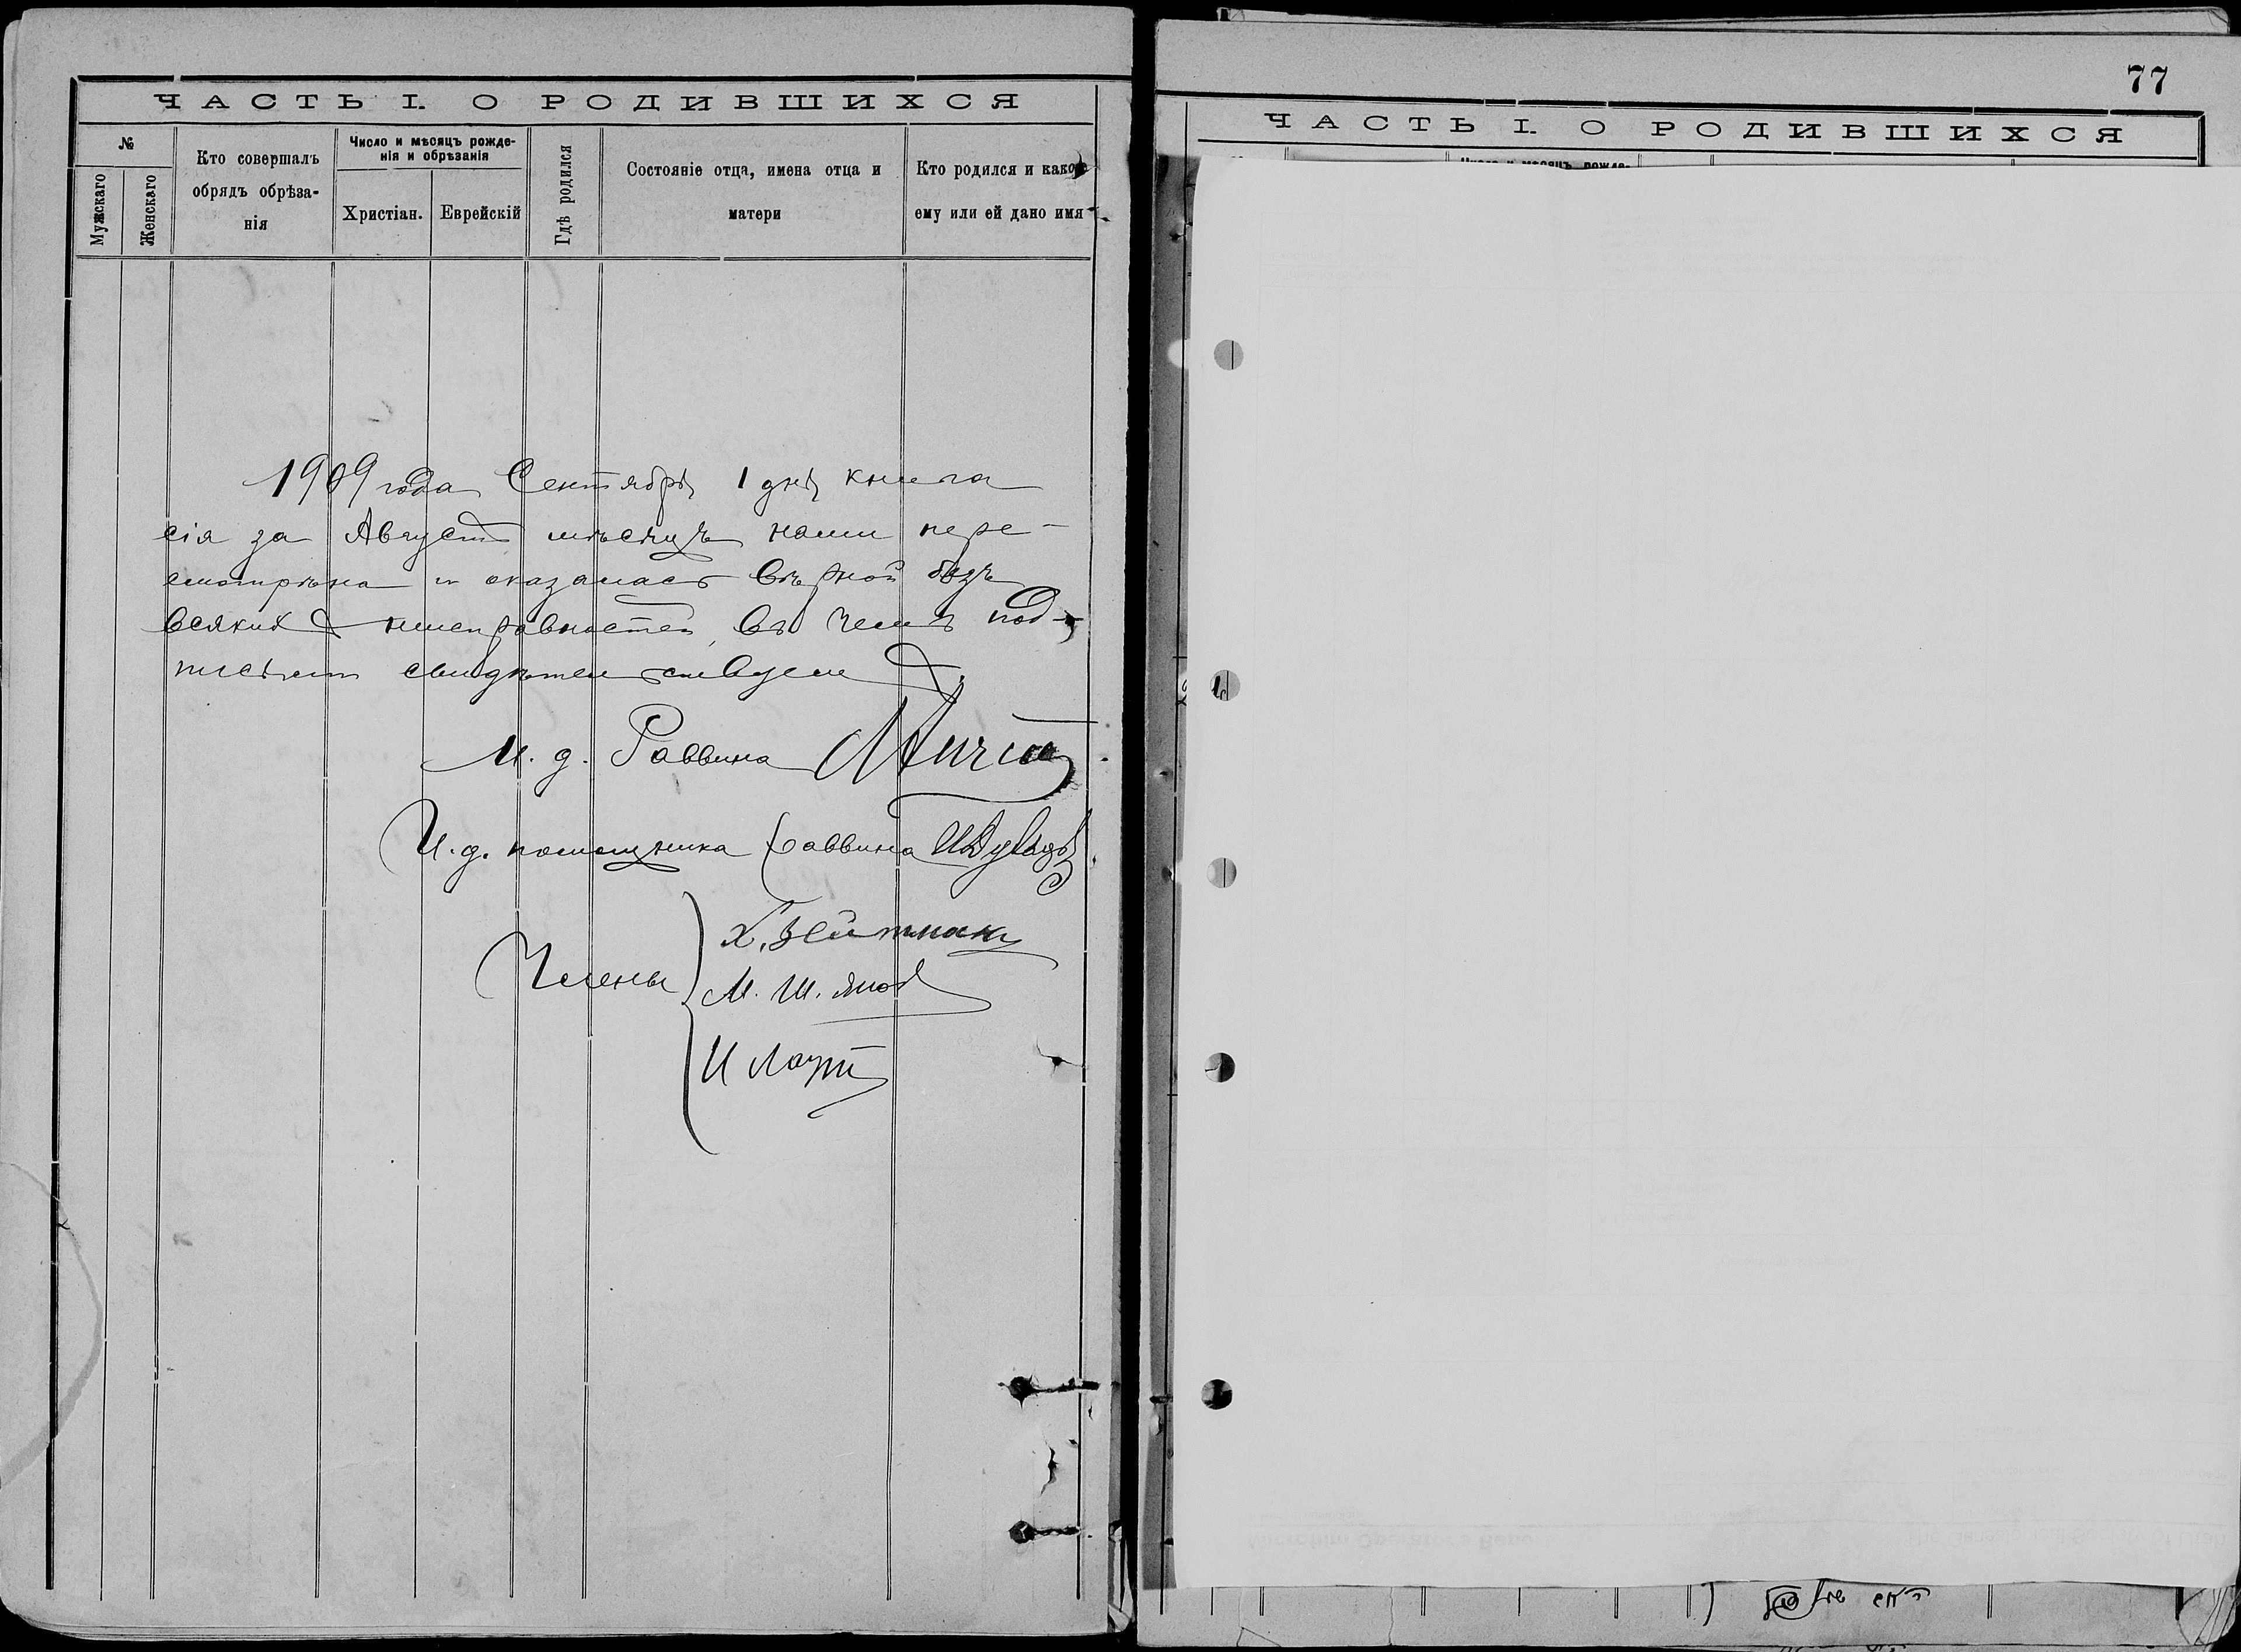 ЧАСТЬ I. О РОДИВШИХСЯ
№
Мужскаго
Женскаго
Кто совершалъ
обрядъ обрѣза-
нія
Число и мѣсяцъ рожде-
нія и обрѣзанія
Христіан.
Еврейскій
Гдѣ родился
Состояніе отца, имена отца и
матери
Кто родился и какое
ему или ей дано имя
1909 года Сентября 1 дня книга
сія за Августъ мѣсяцъ нами пере-
смотрѣна и оказалась вѣрной безъ
всякихъ неисправностей, въ чемъ под-
писями свидѣтельствуемъ.
И. д. Раввина
И. д. помощника раввина
Члены
Х.
М. Ш.
И
77
ЧАСТЬ I. О РОДИВШИХСЯ